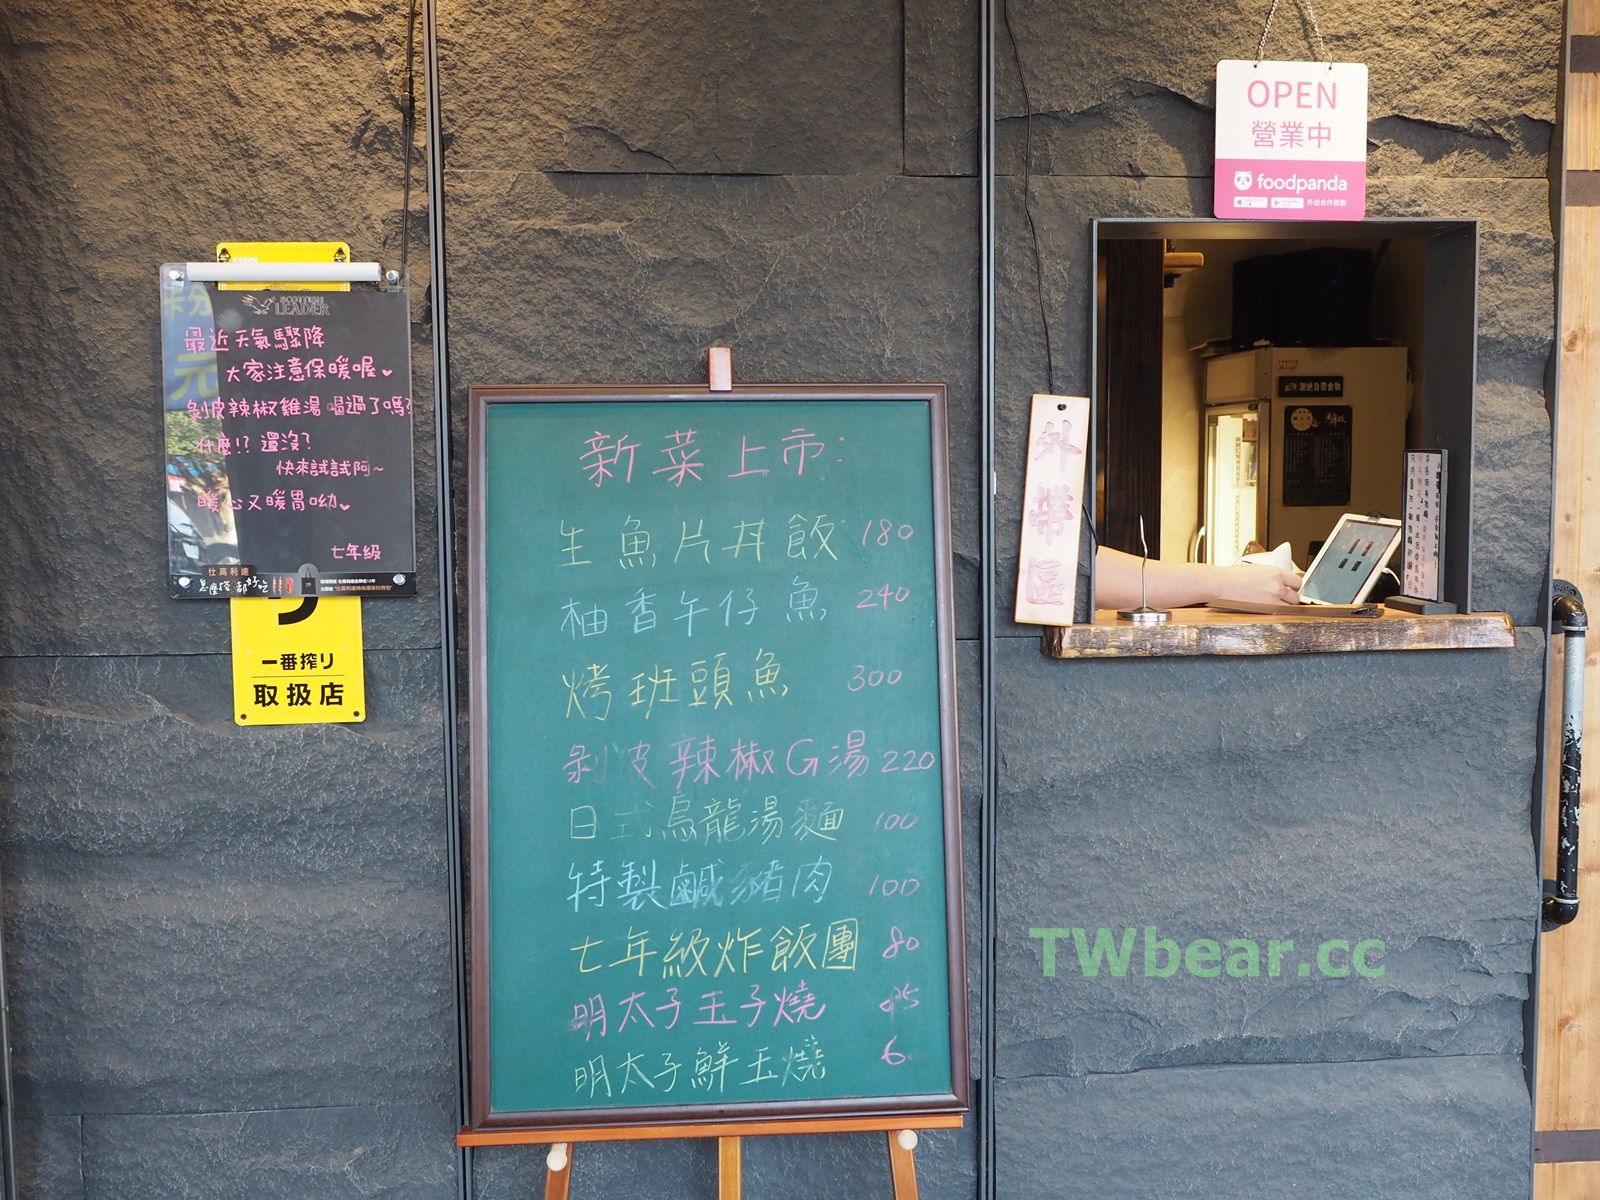 KIRIN
SCOTTISH
LEADER
最近天氣驟降
大家注意保暖喔
剝皮辣椒雞湯 喝過了嗎?
什麼!? 還沒?
快來試試阿~
暖心又暖胃呦
七年級
仕高利達
怎麼搭 都好吃
一番搾り
取扱店
新菜上市:
生魚片丼飯 180
柚香午仔魚 240
烤斑頭魚 300
剝皮辣椒G湯 220
日式烏龍湯麵 100
特製鹹豬肉 100
七年級炸飯團 80
明太子玉子燒
明太子鮮玉燒
OPEN
營業中
foodpanda
外送合作餐廳
外帶區
謝絕自帶食物
TWbear.cc